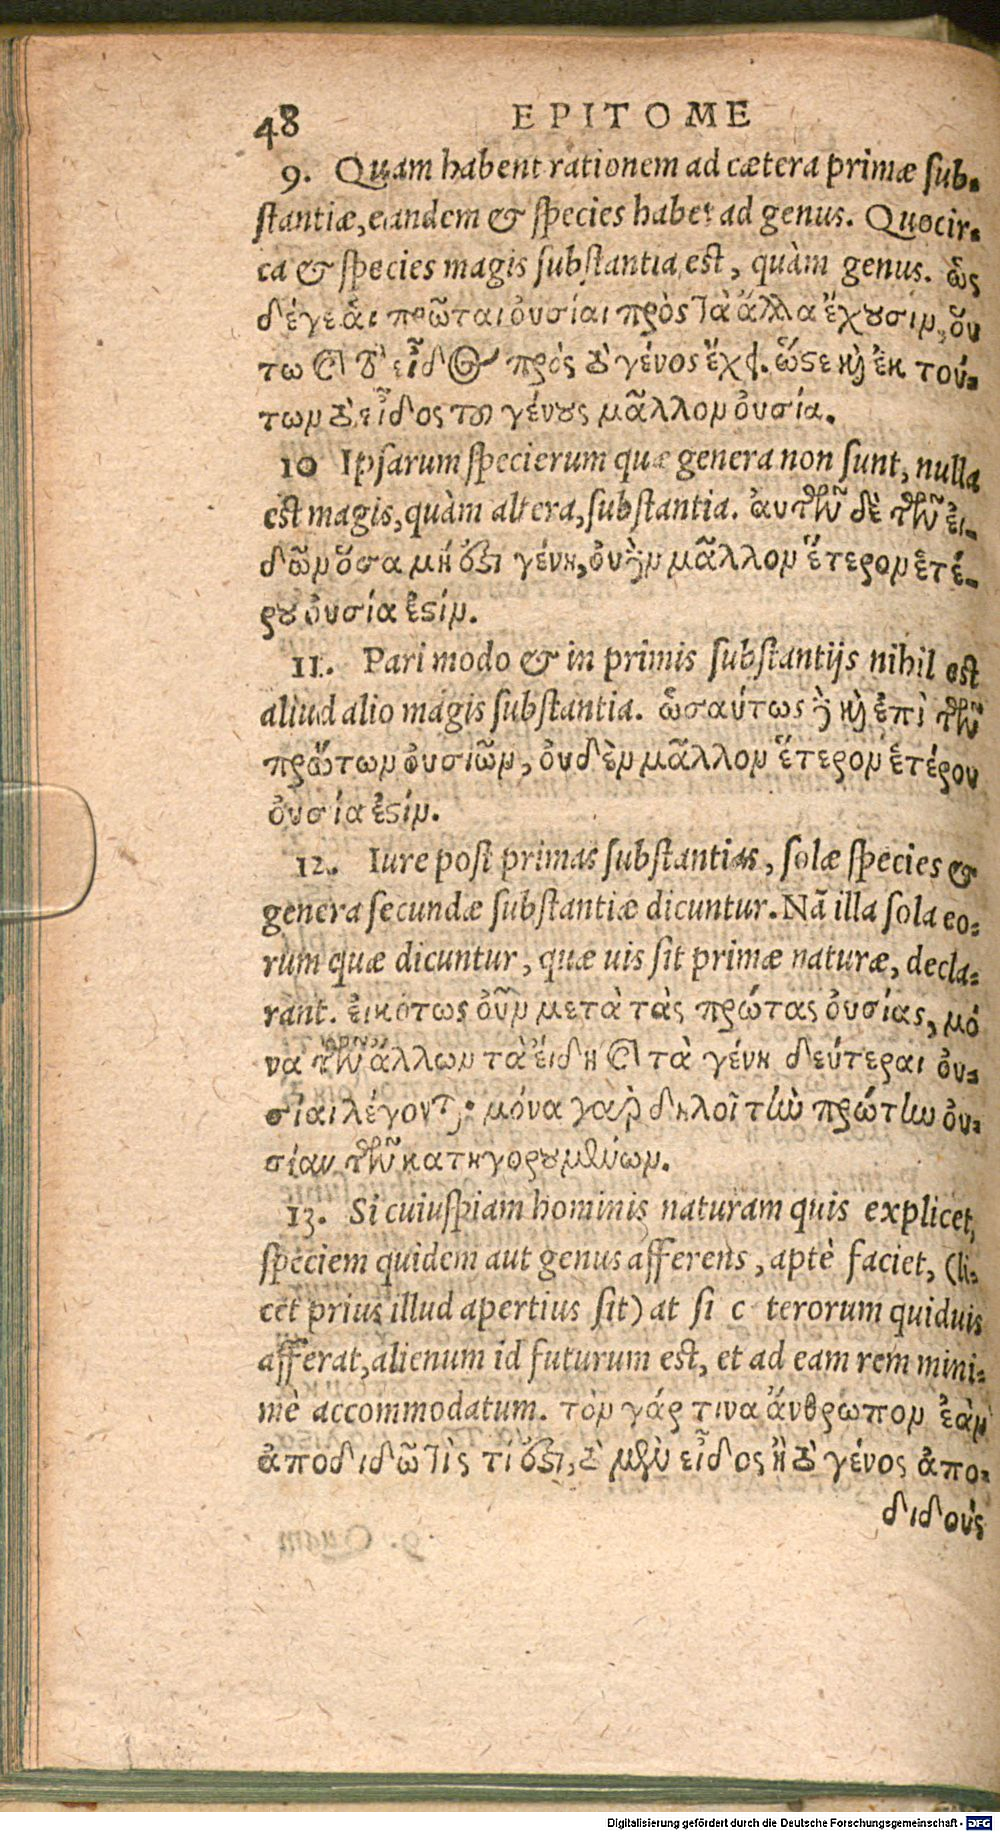 48 EPITOME
9. Quam habent rationem ad cætera primæ sub-
stantiæ, eandem & species habet ad genus. Quocir-
ca & species magis substantia est, quàm genus. ὡς
δέ γε αἱ πρῶται οὐσίαι πρὸς τὰ ἄλλα ἔχουσιν, οὕ
τω καὶ τὸ εἶδος πρὸς τὸ γένος ἔχει. ὥστε καὶ ἐκ τού-
των τὸ εἶδος τοῦ γένους μᾶλλον οὐσία.
10 Ipsarum specierum quæ genera non sunt, nulla
est magis, quàm altera, substantia. αὐτῶν δὲ τῶν εἰ-
δῶν ὅσα μή ἐστι γένη, οὐδὲν μᾶλλον ἕτερον ἑτέ-
ρου οὐσία ἐστίν.
11. Pari modo & in primis substantijs nihil est
aliud alio magis substantia. ὡσαύτως δὲ καὶ ἐπὶ τῶν
πρώτων οὐσιῶν, οὐδὲν μᾶλλον ἕτερον ἑτέρου
οὐσία ἐστίν.
12. Iure post primas substantias, solæ species &
genera secundæ substantiæ dicuntur. Nã illa sola eo-
rum quæ dicuntur, quæ uis sit primæ naturæ, decla-
rant. εἰκότως οὖν μετὰ τὰς πρώτας οὐσίας, μό
να τῶν ἄλλων τὰ εἴδη καὶ τὰ γένη δεύτεραι οὐ-
σίαι λέγονται. μόνα γὰρ δηλοῖ τὴν πρώτην οὐ-
σίαν τῶν κατηγορουμένων.
13. Si cuiuspiam hominis naturam quis explicet,
speciem quidem aut genus afferens, aptè faciet, (li-
cet prius illud apertius sit) at si c terorum quiduis
afferat, alienum id futurum est, et ad eam rem mini-
mè accommodatum. τὸν γάρ τινα ἄνθρωπον ἐὰν
ἀποδιδῶ τὶς τί ἐστι, τὸ μὲν εἶδος ἢ τὸ γένος ἀπο-
διδούς
Digitalisierung gefördert durch die Deutsche Forschungsgemeinschaft - DFG